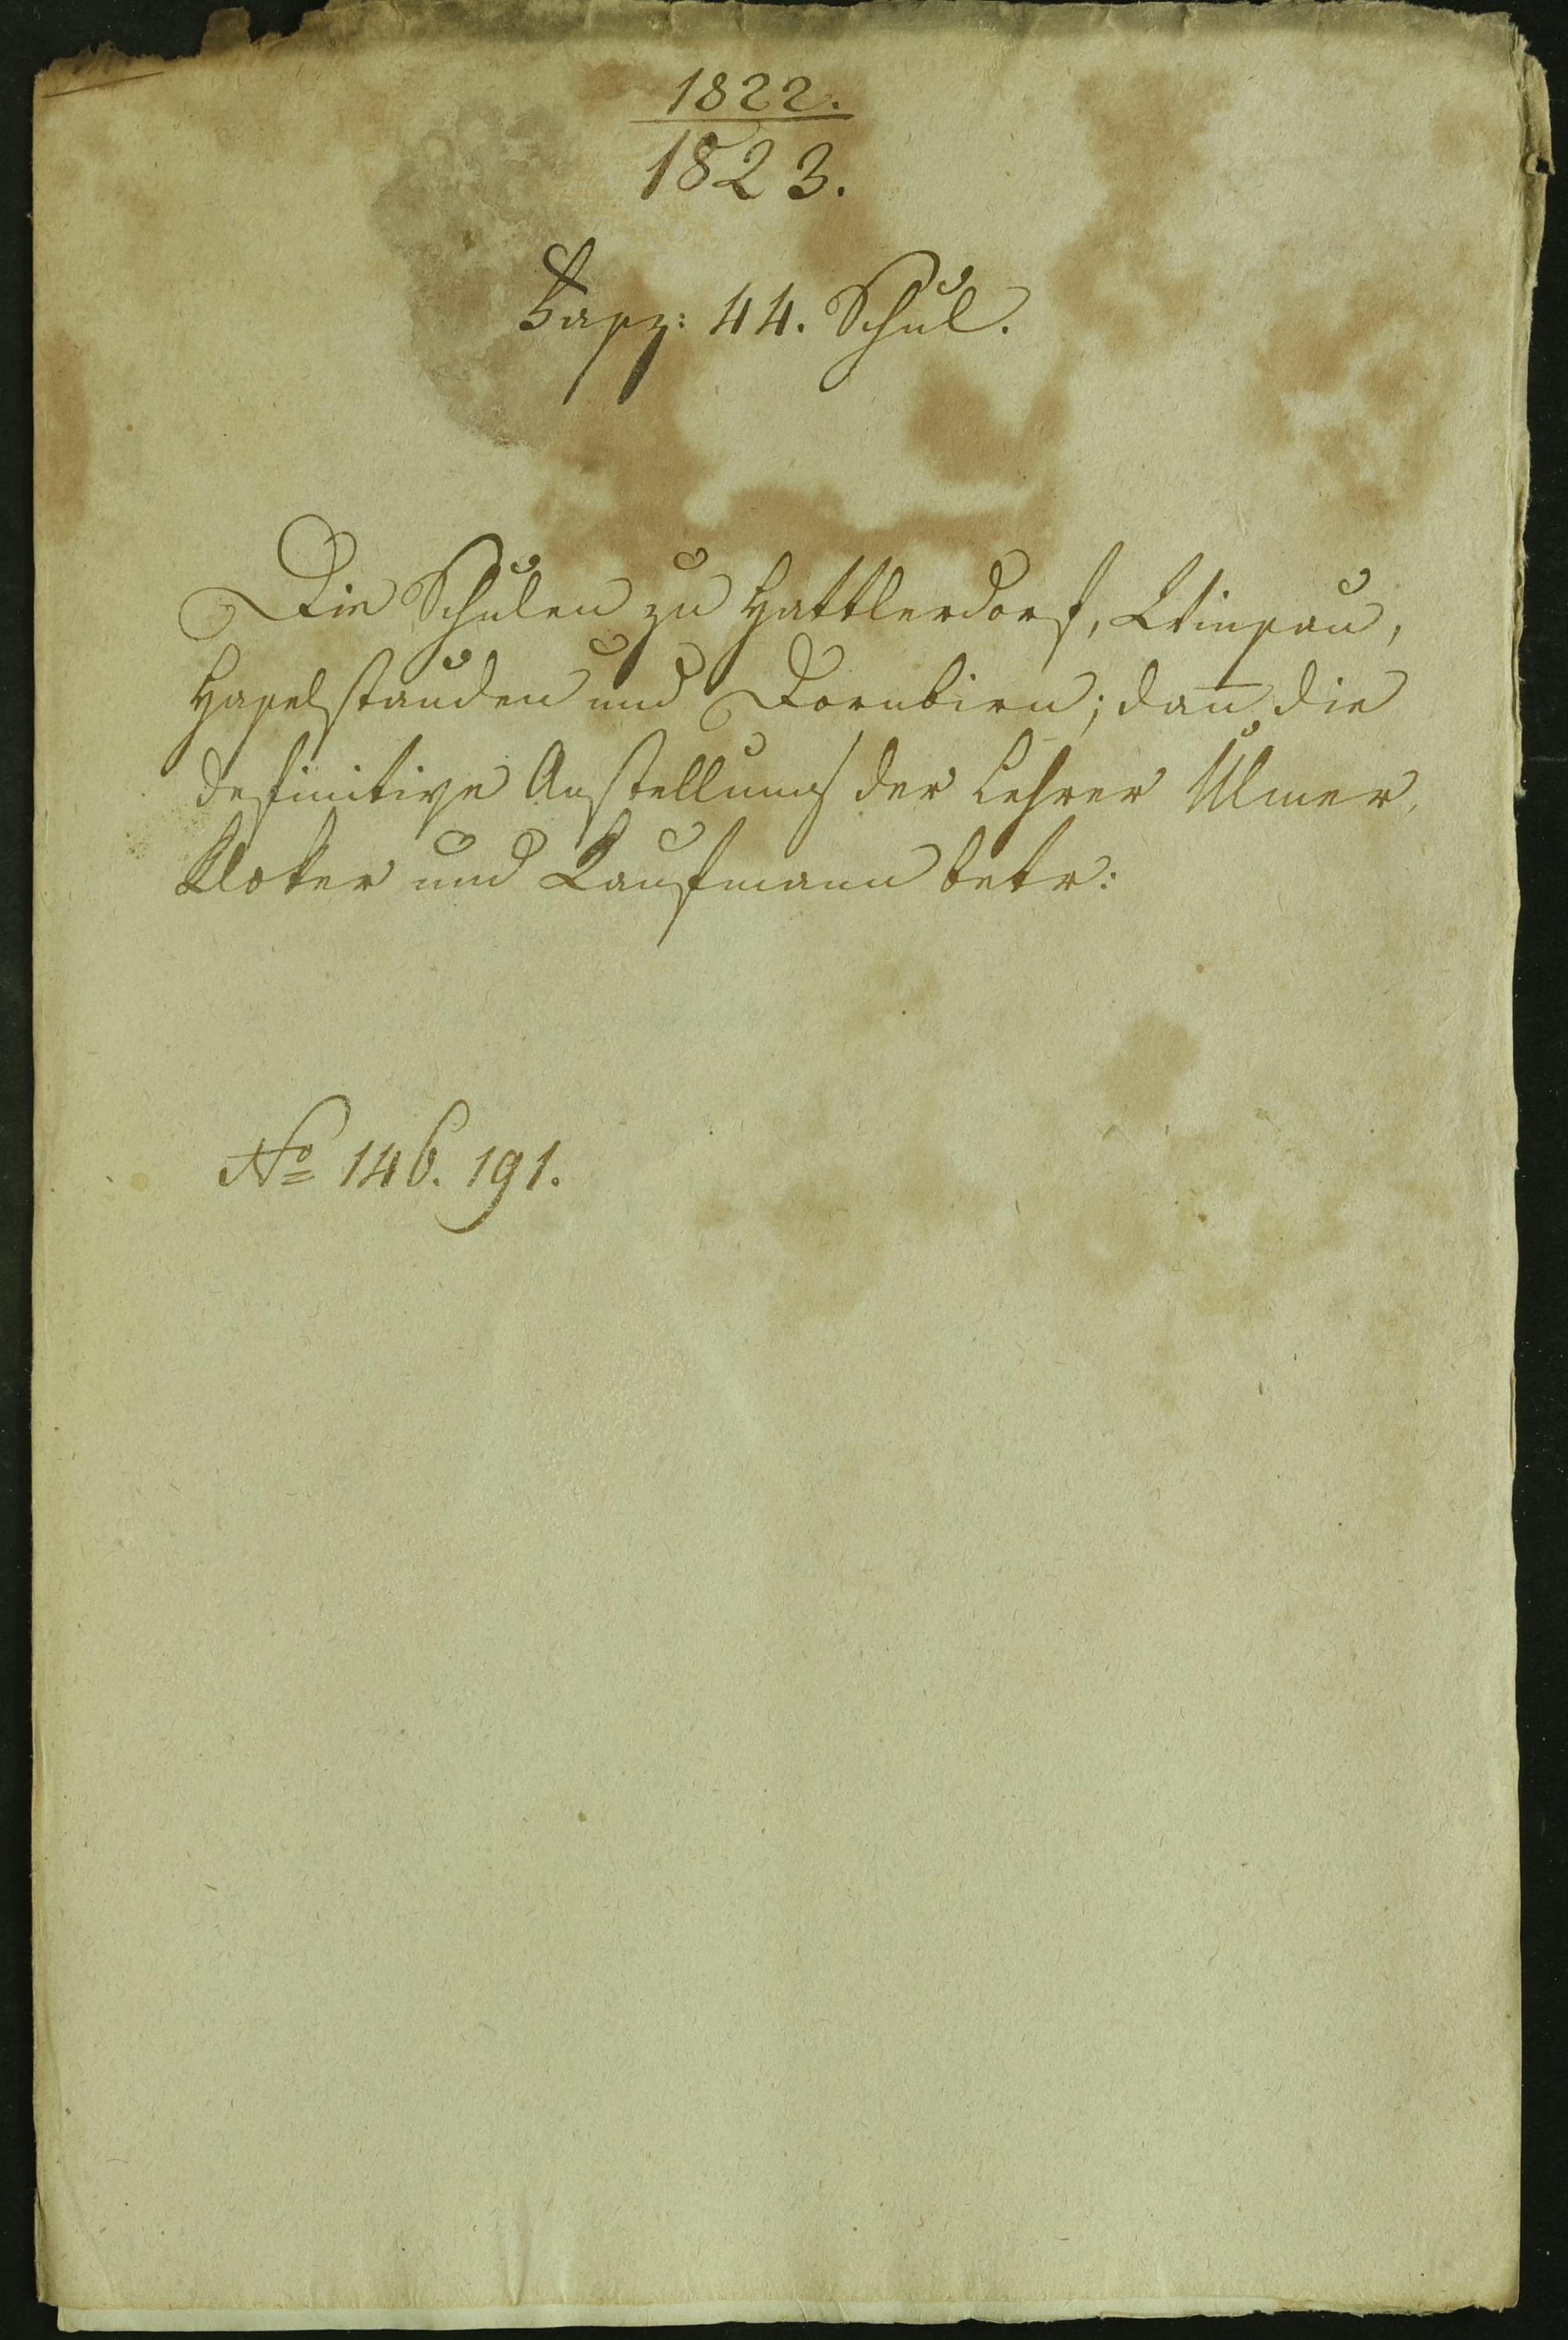 1822.
1823.
Fasz: 44. Schul.
Die Schulen zu Hattlerdorf,
Haselstauden und Dornbirn; dan̄ die
definitive Anstellung der Lehrer Ulmer,
Kloker und Kaufmann betr:
No 146. 191.